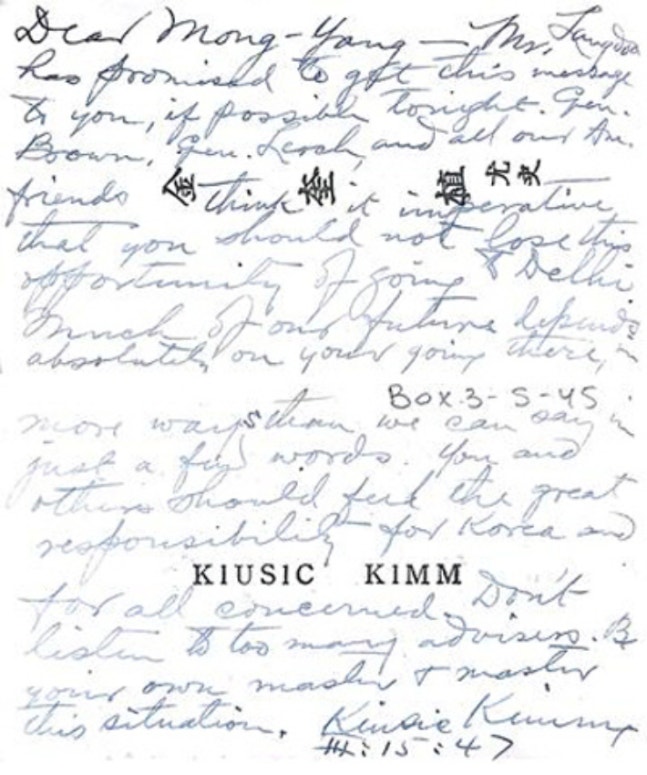 Dear Mong-Yang — Mr. Langdon
has promised to get this message
to you, if possible tonight. Gen.
Brown, Gen. Lerch, and all our Am.
金奎植 尤史
friends think it imperative
that you should not lose this
opportunity of going to Delhi
Much of our future depends
absolutely on your going there, in
BOX.3-S-45
more ways than we can say in
just a few words. You and
others should feel the great
responsibility for Korea and
KIUSIC KIMM
for all concerned. Don't
listen to too many advisers. B
your own master & master
this situation. Kiusic Kimm
III:15:47